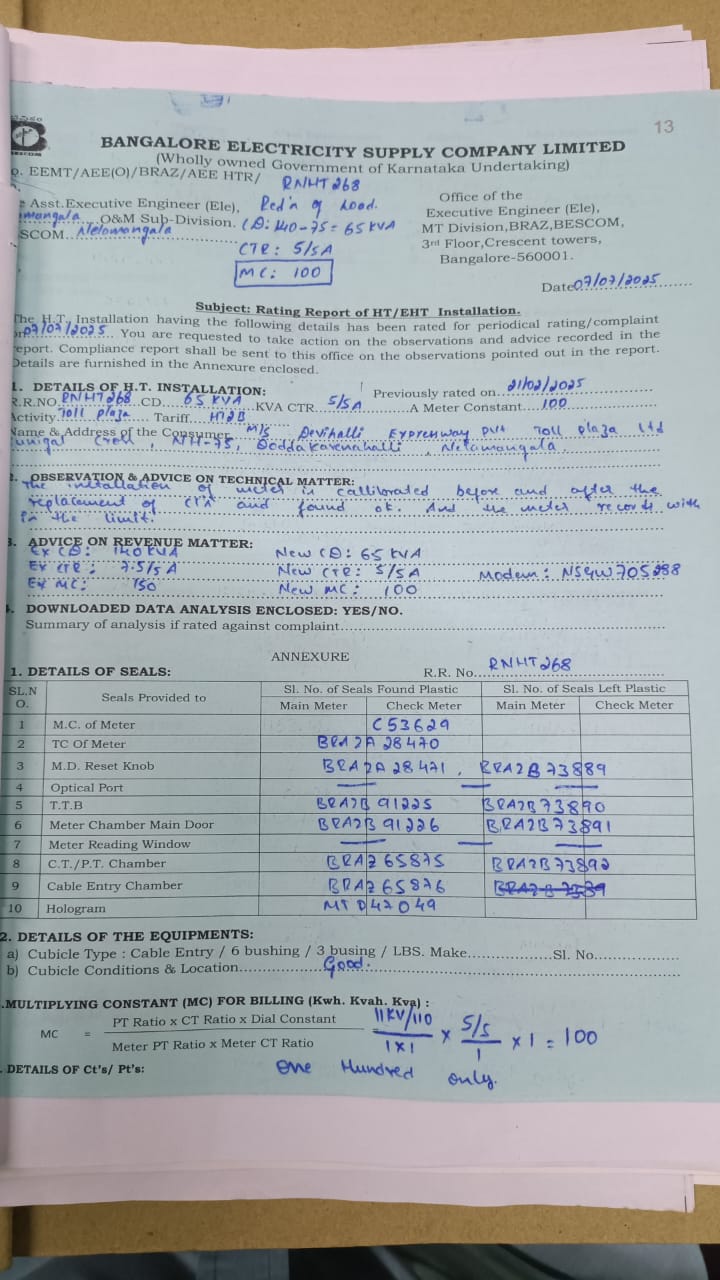 13
BANGALORE ELECTRICITY SUPPLY COMPANY LIMITED
(Wholly owned Government of Karnataka Undertaking)
o. EEMT/AEE(O)/BRAZ/AEE HTR/ RNHT 268
Asst.Executive Engineer (Ele), Red'n of Load.
O&M Sub-Division. CD: 140-75 = 65 KVA
SCOM.. Nelamangala
CTR: 5/5A
MC: 100
Office of the
Executive Engineer (Ele),
MT Division,BRAZ,BESCOM,
3rd Floor,Crescent towers,
Bangalore-560001.
Date 07/07/2025
Subject: Rating Report of HT/EHT Installation.
The H.T. Installation having the following details has been rated for periodical rating/complaint
on 07/07/2025 You are requested to take action on the observations and advice recorded in the
report. Compliance report shall be sent to this office on the observations pointed out in the report.
Details are furnished in the Annexure enclosed.
1. DETAILS OF H.T. INSTALLATION: Previously rated on 21/02/2025
R.R.NO RNHT268 CD 65 KVA KVA CTR 5/5A A Meter Constant 100
Activity Toll plaza Tariff HT2B
Name & Address of the Consumer M/s Devihalli Expressway Pvt Toll plaza Ltd
Cross, NH-75, Nelamangala
2. OBSERVATION & ADVICE ON TECHNICAL MATTER:
The installation of meter is callibrated before and after the
replacement of CTs and found ok. And the meter records with
in the limit.
3. ADVICE ON REVENUE MATTER:
Ex CD: 140 KVA New CD: 65 KVA
Ex CTR: 7.5/5 A New CTR: 5/5A Modem: NSGW705288
Ex MC: 150 New MC: 100
4. DOWNLOADED DATA ANALYSIS ENCLOSED: YES/NO.
Summary of analysis if rated against complaint
ANNEXURE
1. DETAILS OF SEALS: R.R. No. RNHT 268
SL.N O. Seals Provided to Sl. No. of Seals Found Plastic Sl. No. of Seals Left Plastic
Main Meter Check Meter Main Meter Check Meter
1 M.C. of Meter C53629
2 TC Of Meter BRA2A 28470
3 M.D. Reset Knob BRA2A 28471, BRA2B 73889
4 Optical Port — — —
5 T.T.B BRA2B 91225 BRA2B73890
6 Meter Chamber Main Door BRA2B 91226 BRA2B73891
7 Meter Reading Window — — —
8 C.T./P.T. Chamber BRAZ 65875 BRA2B73892
9 Cable Entry Chamber BRAZ 65876
10 Hologram MTD47049
2. DETAILS OF THE EQUIPMENTS:
a) Cubicle Type : Cable Entry / 6 bushing / 3 busing / LBS. Make Sl. No.
b) Cubicle Conditions & Location Good.
.MULTIPLYING CONSTANT (MC) FOR BILLING (Kwh. Kvah. Kva) :
MC = PT Ratio x CT Ratio x Dial Constant 11KV/110 x 5/5 x 1 = 100
Meter PT Ratio x Meter CT Ratio 1x1 1
. DETAILS OF Ct's/ Pt's: One Hundred only.